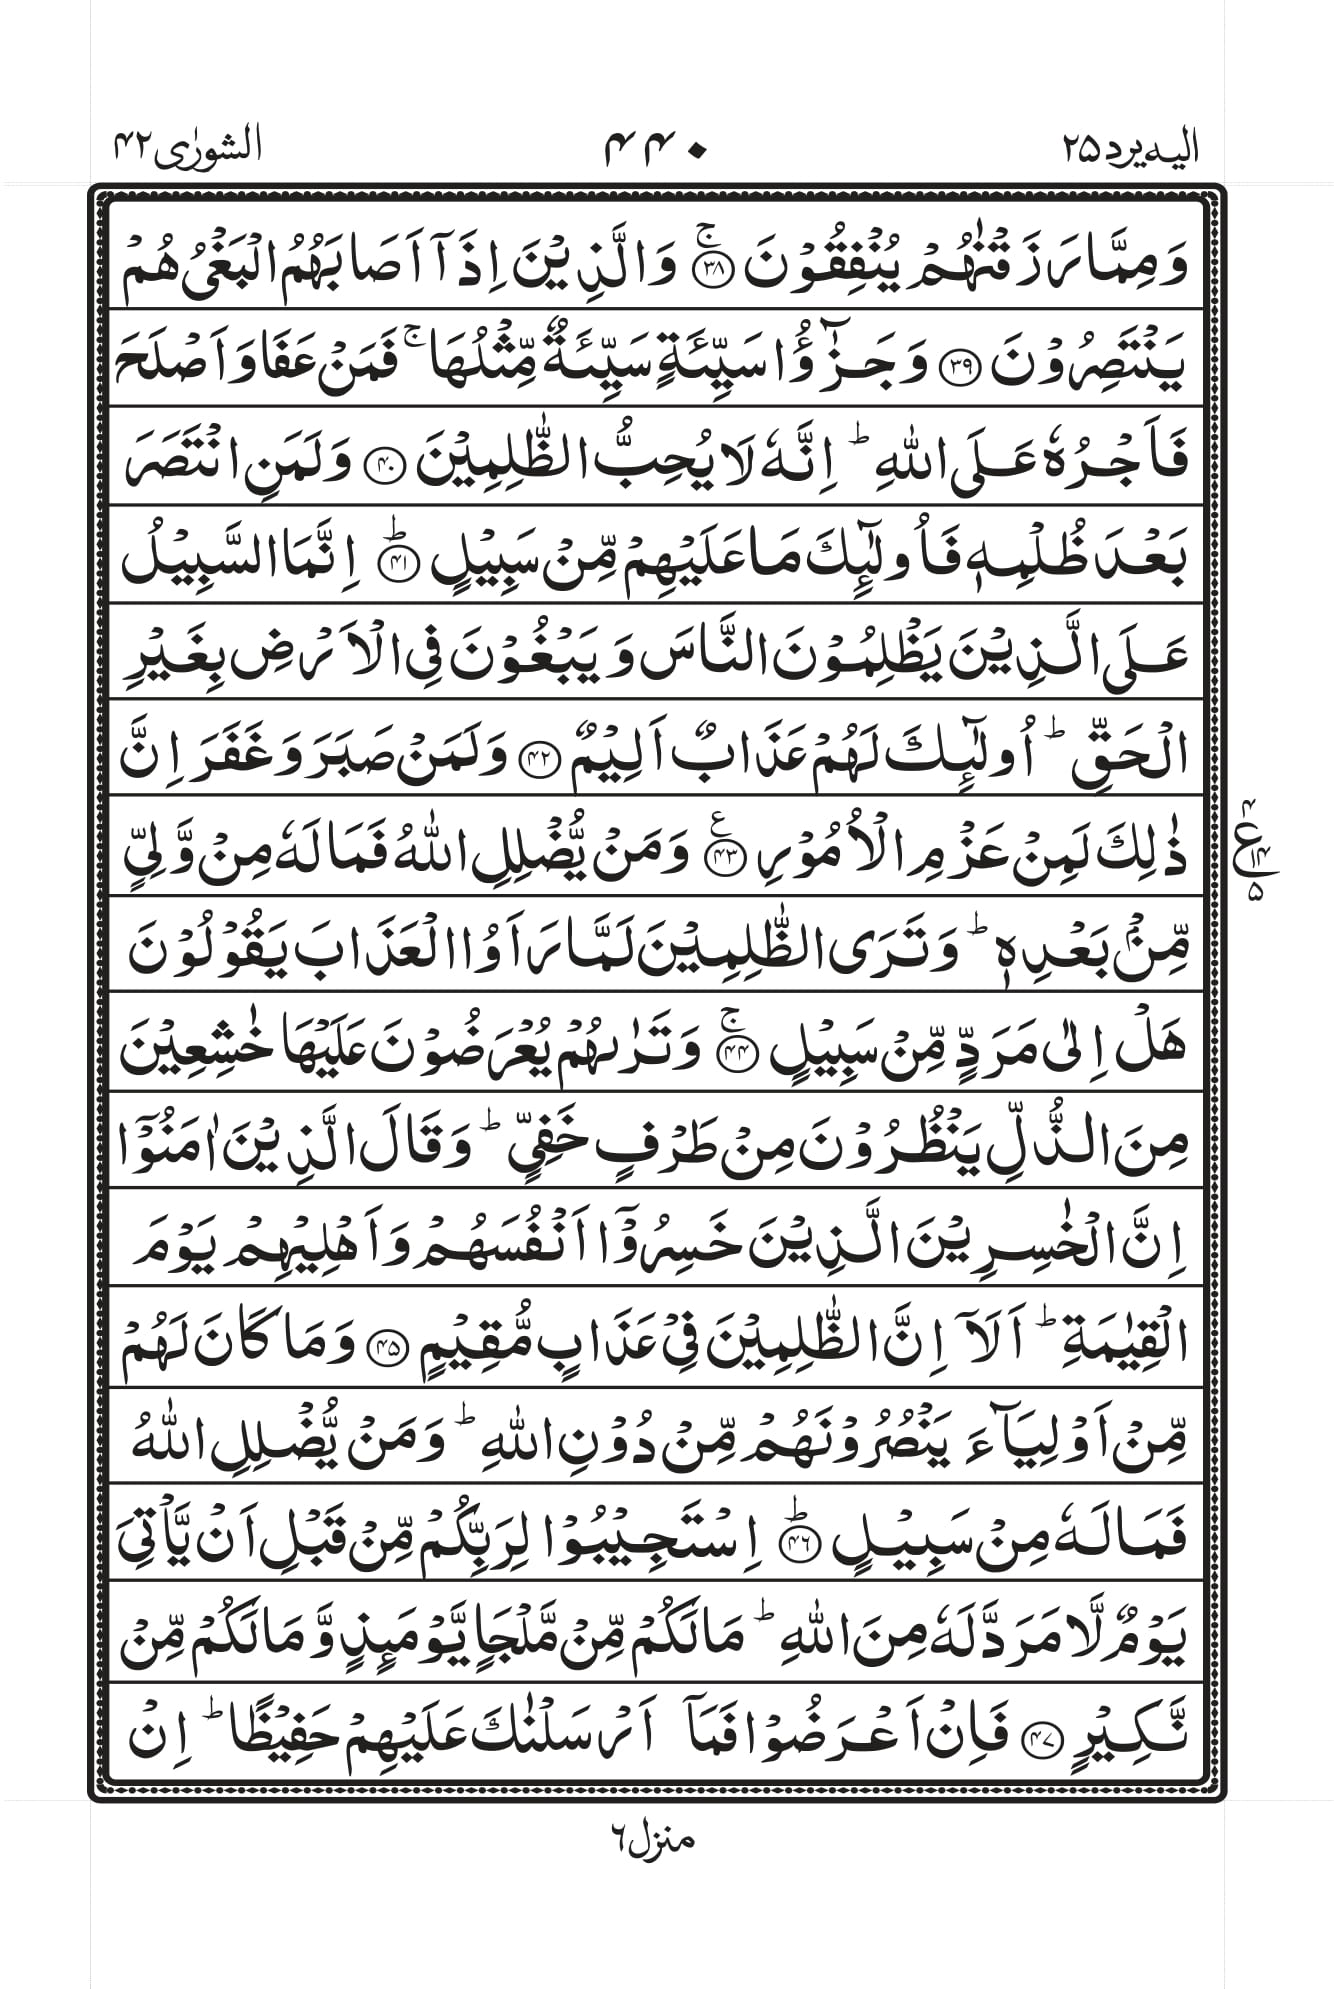 الیه یرد ۲۵
۴۴۰
الشورٰی ۴۲
وَمِمَّا رَزَقْنٰهُمْ يُنْفِقُوْنَ ۚ‏﴿۳۸﴾ وَالَّذِيْنَ اِذَاۤ اَصَابَهُمُ الْبَغْىُ هُمْ
يَنْتَصِرُوْنَ ﴿۳۹﴾ وَجَزٰٓؤُا سَيِّئَةٍ سَيِّئَةٌ مِّثْلُهَا ۚ فَمَنْ عَفَا وَاَصْلَحَ
فَاَجْرُهٗ عَلَى اللّٰهِ ؕ اِنَّهٗ لَا يُحِبُّ الظّٰلِمِيْنَ ﴿۴۰﴾ وَلَمَنِ انْتَصَرَ
بَعْدَ ظُلْمِهٖ فَاُولٰٓئِكَ مَا عَلَيْهِمْ مِّنْ سَبِيْلٍ ؕ﴿۴۱﴾ اِنَّمَا السَّبِيْلُ
عَلَى الَّذِيْنَ يَظْلِمُوْنَ النَّاسَ وَيَبْغُوْنَ فِى الْاَرْضِ بِغَيْرِ
الْحَقِّ ؕ اُولٰٓئِكَ لَهُمْ عَذَابٌ اَلِيْمٌ ﴿۴۲﴾ وَلَمَنْ صَبَرَ وَغَفَرَ اِنَّ
ذٰلِكَ لَمِنْ عَزْمِ الْاُمُوْرِ ﴿۴۳﴾ع وَمَنْ يُّضْلِلِ اللّٰهُ فَمَا لَهٗ مِنْ وَّلِىٍّ
۴
ع
۱۴
۵
مِّنْۢ بَعْدِهٖ ؕ وَتَرَى الظّٰلِمِيْنَ لَمَّا رَاَوُا الْعَذَابَ يَقُوْلُوْنَ
هَلْ اِلٰى مَرَدٍّ مِّنْ سَبِيْلٍ ۚ﴿۴۴﴾ وَتَرٰىهُمْ يُعْرَضُوْنَ عَلَيْهَا خٰشِعِيْنَ
مِنَ الذُّلِّ يَنْظُرُوْنَ مِنْ طَرْفٍ خَفِىٍّ ؕ وَقَالَ الَّذِيْنَ اٰمَنُوْۤا
اِنَّ الْخٰسِرِيْنَ الَّذِيْنَ خَسِرُوْۤا اَنْفُسَهُمْ وَاَهْلِيْهِمْ يَوْمَ
الْقِيٰمَةِ ؕ اَلَاۤ اِنَّ الظّٰلِمِيْنَ فِىْ عَذَابٍ مُّقِيْمٍ ﴿۴۵﴾ وَمَا كَانَ لَهُمْ
مِّنْ اَوْلِيَآءَ يَنْصُرُوْنَهُمْ مِّنْ دُوْنِ اللّٰهِ ؕ وَمَنْ يُّضْلِلِ اللّٰهُ
فَمَا لَهٗ مِنْ سَبِيْلٍ ؕ﴿۴۶﴾ اِسْتَجِيْبُوْا لِرَبِّكُمْ مِّنْ قَبْلِ اَنْ يَّاْتِىَ
يَوْمٌ لَّا مَرَدَّ لَهٗ مِنَ اللّٰهِ ؕ مَا لَكُمْ مِّنْ مَّلْجَاٍ يَّوْمَئِذٍ وَّمَا لَكُمْ مِّنْ
نَّكِيْرٍ ﴿۴۷﴾ فَاِنْ اَعْرَضُوْا فَمَاۤ اَرْسَلْنٰكَ عَلَيْهِمْ حَفِيْظًا ؕ اِنْ
منزل ۶